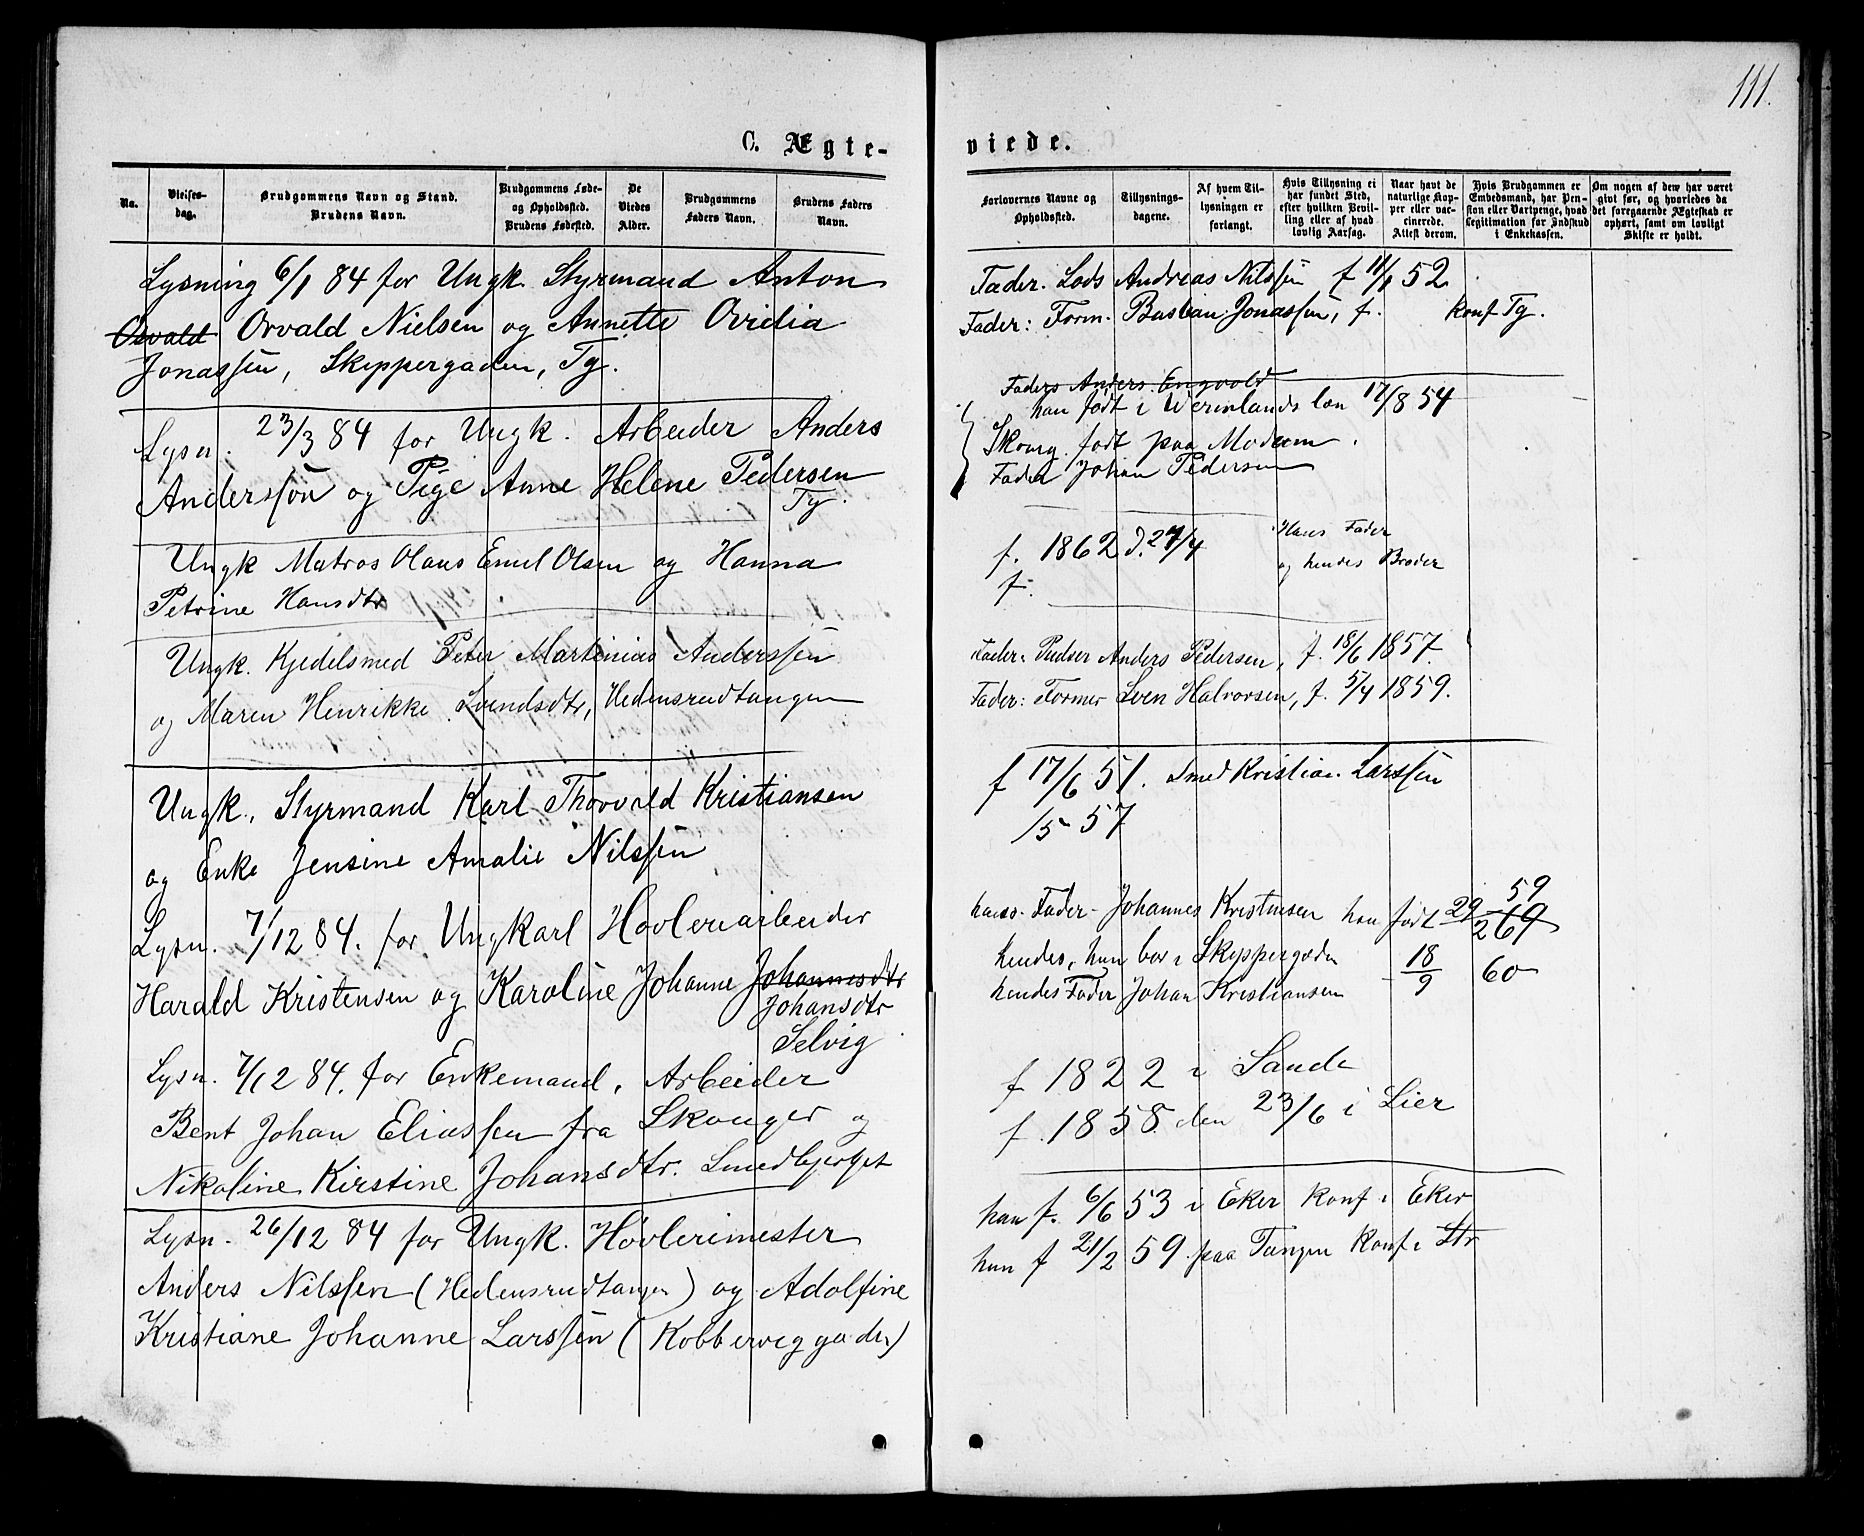 111.
C. Ægte-
No.
Vielses-
dag.
Brudgommens Navn og Stand.
Brudens Navn.
Brudgommens Føde-
og Opholdssted.
Brudens Fødested.
De
Viedes
Alder.
Brudgommens
Faders Navn.
Brudens Faders
Navn.
Lysning 6/1 84 for Ungk. Styrmand Anton
Osvald Osvald Nielsen og Annette Ovidia
Jonassen, Skippergaden, Tg.
Lysn. 23/3 84 for Ungk. Arbeider Anders
Anderssøn og Pige Anne Helene Pedersen
Tg.
Ungk Matros Olaus Emil Olsen og Hanna
Petrine Hansdtr
Ungk. Kjedelsmed Peter Martinius Anderssen
og Maren Henrikke Svendsdtr, Hedensrudtangen
Ungk. Styrmand Karl Thorvald Kristiansen
og Enke Jensine Amalie Nilssen
Lysn. 7/12 84. for Ungkarl Høvleriarbeider
Harald Kristensen og Karoline Johanne Johannesdtr
Johansdtr
Selvig
Lysn. 7/12 84. for Enkemand, Arbeider
Bent Johan Eliassen fra Skouger og
Nikoline Kirstine Johansdtr. Smedbjerget
Lysn. 26/12 84 for Ungk. Høvlerimester
Anders Nilssen (Hedensrudtangen) og Adolfine
Kristiane Johanne Larssen (Kobbervig gaden)
viede.
Forlovernes Navne og
Opholdssted.
Tillysnings-
dagene.
Af hvem Til-
lysningen er
forlangt.
Hvis Tillysning ei
har fundet Sted,
efter hvilken Bevil-
ling eller af hvad
lovlig Aarsag.
Naar havt de
naturlige Kop-
per eller vac-
cinerede.
Attest derom.
Hvis Brudgommen er
Embedsmand, har Pen-
sion eller Vartpenge, hvad
Legitimation for Indskud
i Enkekassen.
Om nogen af dem har været
givt før, og hvorledes da
det foregaaende Ægteskab er
ophørt, samt om lovligt
Skifte er holdt.
Fader. Lods Andreas Nilssen f 11/1 52
Fader: Form. Bastian Jonassen, f. Konf Tg.
Faders Anders Engvold
han født i Wermlands län 17/8 54
Skoug. født paa Modum.
Fader Johan Pedersen
f. 1862 d. 27/4 Hans Fader
f. og hendes Broder
Fader: Pudser Anders Pedersen, f. 18/6 1857.
Fader: Former Sven Halvorsen, f. 5/4 1859.
f 17/6 51. Smed Kristian Larssen
15 57
hans Fader- Johannes Kristensen han født 29/2 69 59
hendes, hun bor i Skippergaden
hendes Fader Johan Kristiansen - 18/9 60
f 1822 i Sande
f. 1858. den 23/6 i Lier
han f. 6/6 53 i Eker Konf i Eker
hun f 21/2 59 paa Tangen Konf i Str